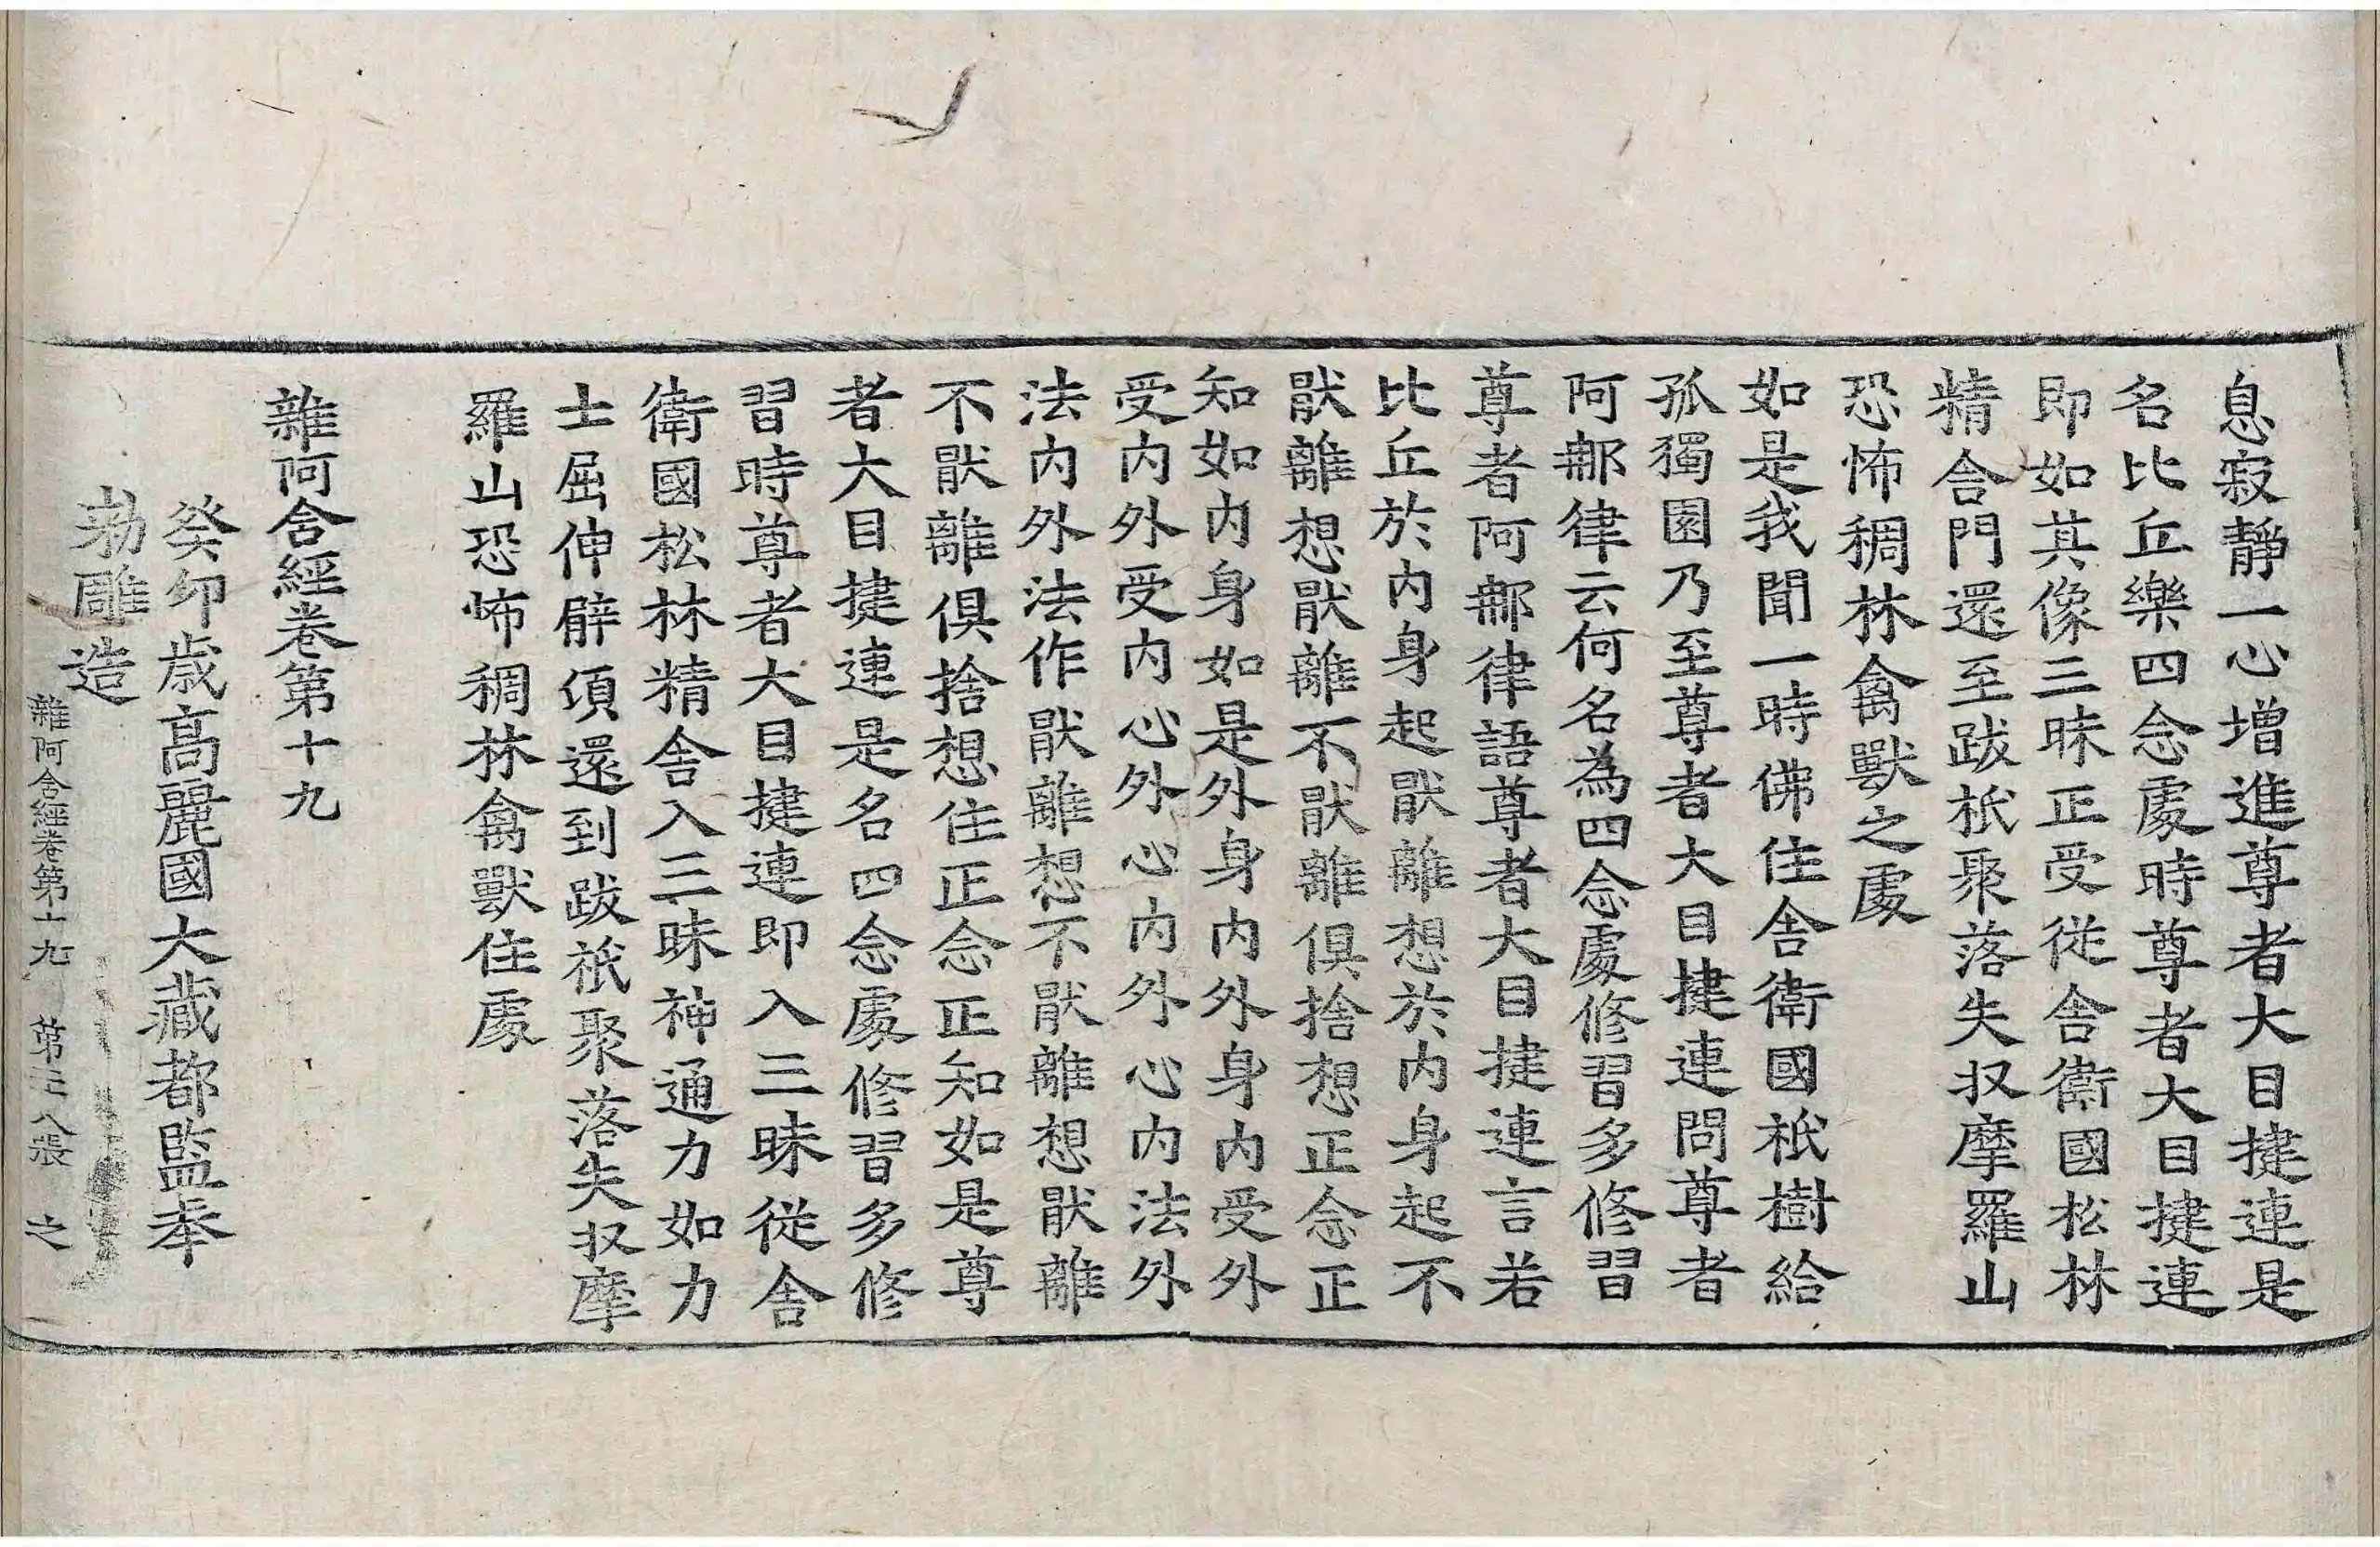 息寂靜一心增進尊者大目揵連是
名比丘樂四念處時尊者大目揵連
即如其像三昧正受從舍衛國松林
精舍門還至跋祇聚落失收摩羅山
恐怖稠林禽獸之處
如是我聞一時佛住舍衛國祇樹給
孤獨園乃至尊者大目揵連問尊者
阿那律云何名為四念處修習多修習
尊者阿那律語尊者大目揵連言若
比丘於內身起猒離想於內身起不
猒離想猒離不猒離俱捨想正念正
知如內身如是外身內外身內受外
受內外受內心外心內外心內法外
法內外法作猒離想不猒離想猒離
不猒離俱捨想住正念正知如是尊
者大目揵連是名四念處修習多修
習時尊者大目揵連即入三昧從舍
衛國松林精舍入三昧神通力如力
士屈伸臂頃還到跋祇聚落失收摩
羅山恐怖稠林禽獸住處
雜阿含經卷第十九
癸卯歲高麗國大藏都監奉
勅雕造
雜阿含經卷第十九 第三八張 之